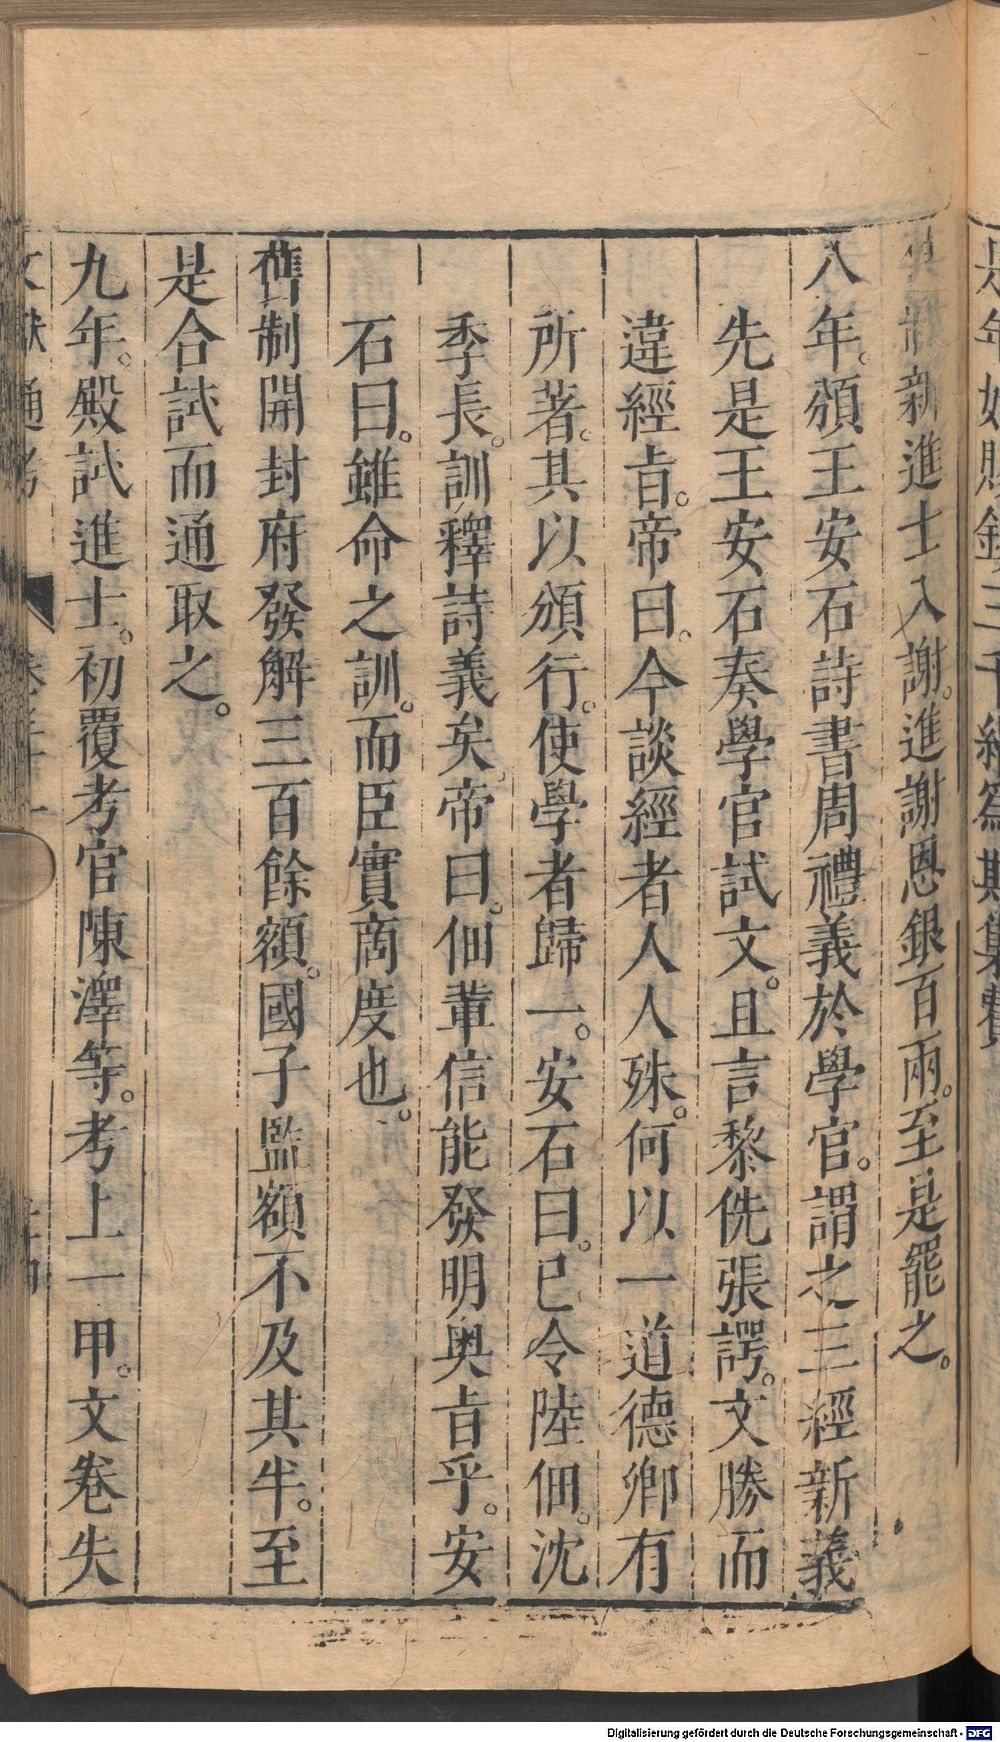 是年始賜錢三千緡爲期集費
舊制新進士入謝。進謝恩銀百兩。至是罷之。
八年。頒王安石詩書周禮義於學官。謂之三經新義
先是王安石奏學官試文。且言黎侁張諤。文勝而
違經㫖。帝曰。今談經者人人殊。何以一道德卿有
所著。其以頒行。使學者歸一。安石曰。已令陸佃。沈
季長。訓釋詩義矣。帝曰。佃輩信能發明奥㫖乎。安
石曰。雖命之訓。而臣實商度也。
舊制開封府發解三百餘額。國子監額不及其半。至
是合試而通取之。
九年。殿試進士。初覆考官陳澤等。考上一甲。文卷失
文獻通考